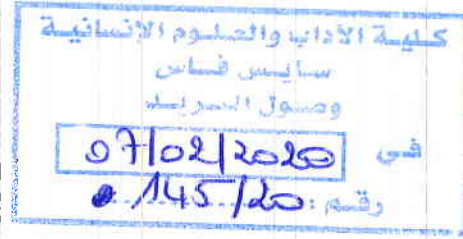 كلية الآداب والعلوم الإنسانية
سايس فاس
وصول البريد
في 07/02/2020
رقم: 145/20